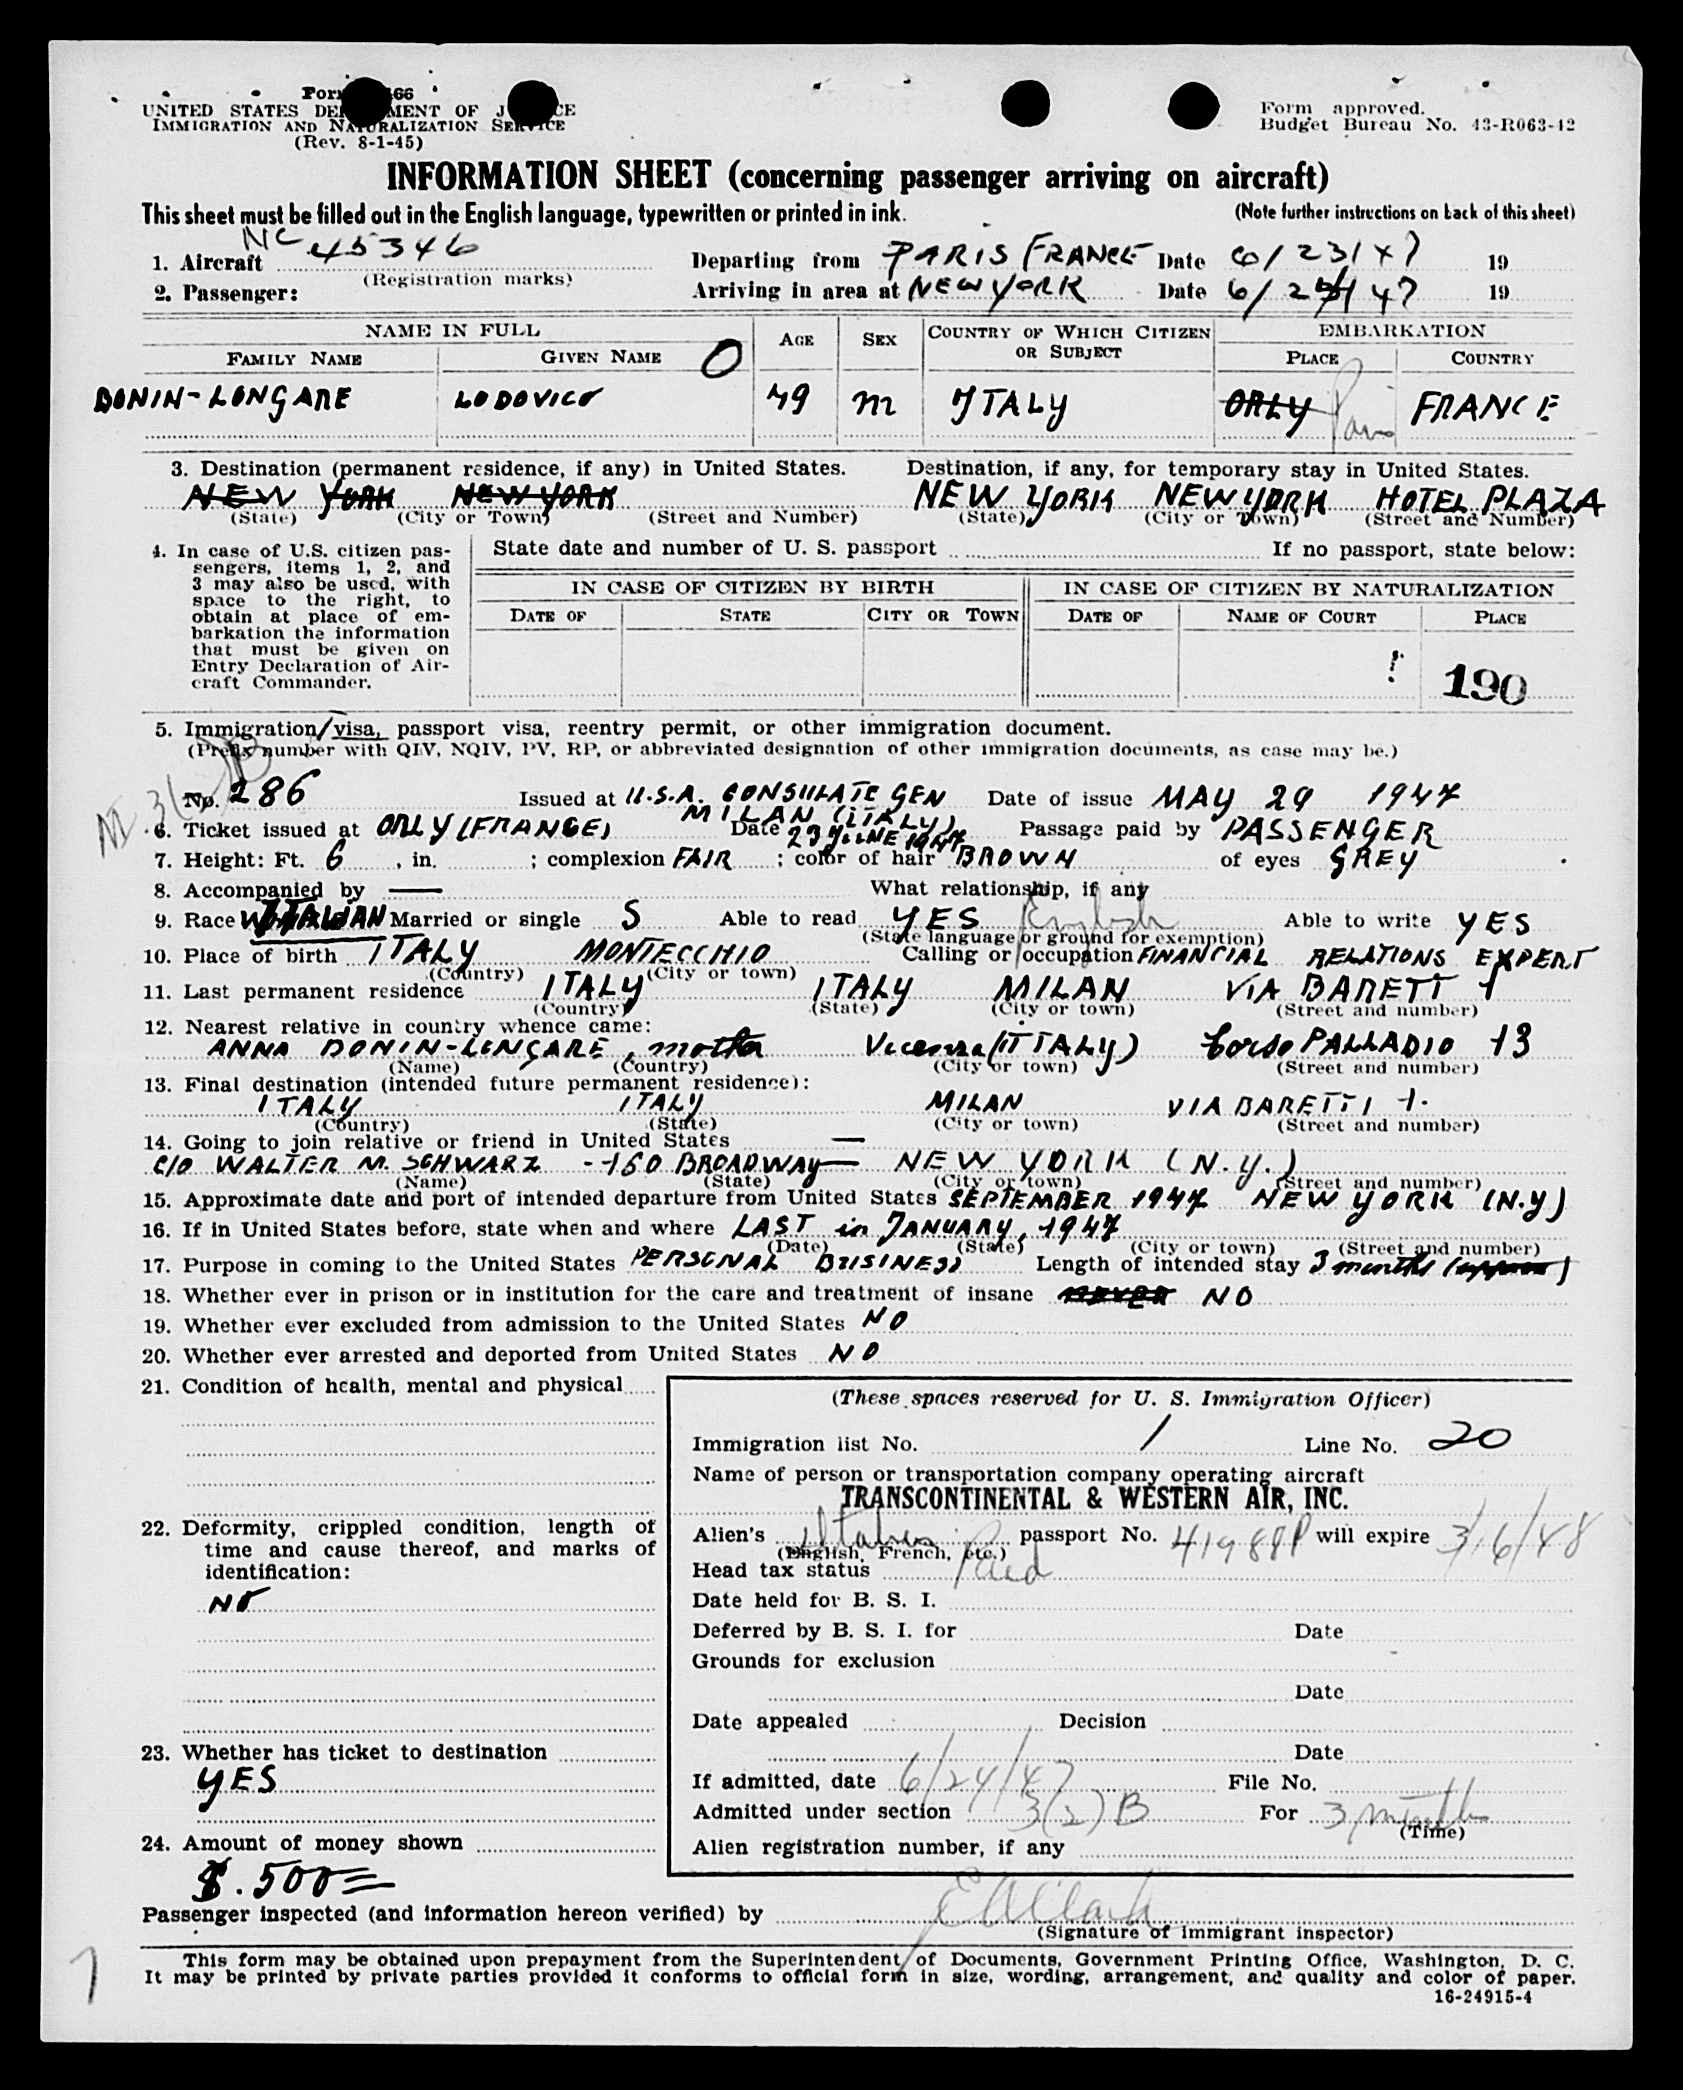 UNITED STATES DE MENT OF J CE
IMMIGRATION AND NATURALIZATION SERVICE
(Rev. 8-1-45)
Form approved.
Budget Bureau No. 43-R063-42
INFORMATION SHEET (concerning passenger arriving on aircraft)
This sheet must be filled out in the English language, typewritten or printed in ink.
(Note further instructions on back of this sheet)
1. Aircraft NC 45346 Departing from PARIS FRANCE Date 6/23/47 19
(Registration marks)
2. Passenger: Arriving in area at NEW YORK Date 6/24/47 19
NAME IN FULL AGE SEX COUNTRY OF WHICH CITIZEN OR SUBJECT EMBARKATION
FAMILY NAME GIVEN NAME O PLACE COUNTRY
DONIN-LONGARE LODOVICO 49 M ITALY ORLY Paris FRANCE
3. Destination (permanent residence, if any) in United States. Destination, if any, for temporary stay in United States.
NEW YORK NEW YORK NEW YORK NEW YORK HOTEL PLAZA
(State) (City or Town) (Street and Number) (State) (City or Town) (Street and Number)
4. In case of U.S. citizen pas-
sengers, items 1, 2, and
3 may also be used, with
space to the right, to
obtain at place of em-
barkation the information
that must be given on
Entry Declaration of Air-
craft Commander.
State date and number of U. S. passport If no passport, state below:
IN CASE OF CITIZEN BY BIRTH IN CASE OF CITIZEN BY NATURALIZATION
DATE OF STATE CITY OR TOWN DATE OF NAME OF COURT PLACE
190
5. Immigration/visa, passport visa, reentry permit, or other immigration document.
(Prefix number with QIV, NQIV, PV, RP, or abbreviated designation of other immigration documents, as case may be.)
No. 286 Issued at U.S.A. CONSULATE GEN MILAN (ITALY) Date of issue MAY 29 1947
6. Ticket issued at ORLY (FRANCE) Date 23 JUNE 1947 Passage paid by PASSENGER
7. Height: Ft. 6, in. ; complexion FAIR ; color of hair BROWN of eyes GREY
8. Accompanied by — What relationship, if any
9. Race ITALIAN Married or single S Able to read YES English Able to write YES
(State language or ground for exemption)
10. Place of birth ITALY MONTECCHIO Calling or occupation FINANCIAL RELATIONS EXPERT
(Country) (City or town)
11. Last permanent residence ITALY ITALY MILAN VIA BARETTI 1
(Country) (State) (City or town) (Street and number)
12. Nearest relative in country whence came:
ANNA DONIN-LONGARE, mother Vicenza (ITALY) Corso PALLADIO 13
(Name) (Country) (City or town) (Street and number)
13. Final destination (intended future permanent residence):
ITALY ITALY MILAN VIA BARETTI 1.
(Country) (State) (City or town) (Street and number)
14. Going to join relative or friend in United States —
C/O WALTER M. SCHWARZ - 150 BROADWAY — NEW YORK (N.Y.)
(Name) (State) (City or town) (Street and number)
15. Approximate date and port of intended departure from United States SEPTEMBER 1947 NEW YORK (N.Y)
16. If in United States before, state when and where LAST in JANUARY, 1947
(Date) (State) (City or town) (Street and number)
17. Purpose in coming to the United States PERSONAL BUSINESS Length of intended stay 3 months (approx)
18. Whether ever in prison or in institution for the care and treatment of insane NEVER NO
19. Whether ever excluded from admission to the United States NO
20. Whether ever arrested and deported from United States NO
21. Condition of health, mental and physical
22. Deformity, crippled condition, length of
time and cause thereof, and marks of
identification:
NO
23. Whether has ticket to destination
YES
24. Amount of money shown
$.500=
(These spaces reserved for U. S. Immigration Officer)
Immigration list No. 1 Line No. 20
Name of person or transportation company operating aircraft
TRANSCONTINENTAL & WESTERN AIR, INC.
Alien's Italian passport No. 41988P will expire 3/6/48
(English, French, etc.)
Head tax status Paid
Date held for B. S. I.
Deferred by B. S. I. for Date
Grounds for exclusion
Date
Date appealed Decision
Date
If admitted, date 6/24/47 File No.
Admitted under section 3(2)B For 3 months
(Time)
Alien registration number, if any
Passenger inspected (and information hereon verified) by E A Clark
(Signature of immigrant inspector)
This form may be obtained upon prepayment from the Superintendent of Documents, Government Printing Office, Washington, D. C.
It may be printed by private parties provided it conforms to official form in size, wording, arrangement, and quality and color of paper.
16-24915-4